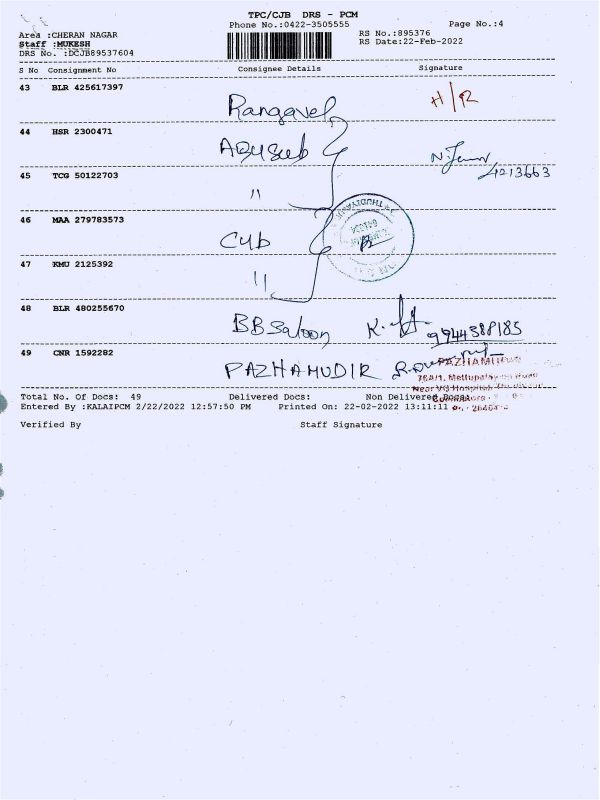 TPC/CJB DRS - PCM
Phone No.:0422-3505555 Page No.:4
Area :CHERAN NAGAR RS No.:895376
Staff :MUKESH RS Date:22-Feb-2022
DRS No. :DCJB89537604
S No Consignment No Consignee Details Signature
43 BLR 425617397 Rangavel H/R
44 HSR 2300471
45 TCG 50122703 "
46 MAA 279783573 Cub
47 KMU 2125392 "
48 BLR 480255670 BB Saloon K. 9944388185
49 CNR 1592282 PAZHAMUDIR
PAZHAMUDIR
78A/1, Mettupalayam Road
Near VG Hospital,
Coimbatore
Total No. Of Docs: 49 Delivered Docs: Non Delivered Docs:
Entered By :KALAIPCM 2/22/2022 12:57:50 PM Printed On: 22-02-2022 13:11:11
Verified By Staff Signature